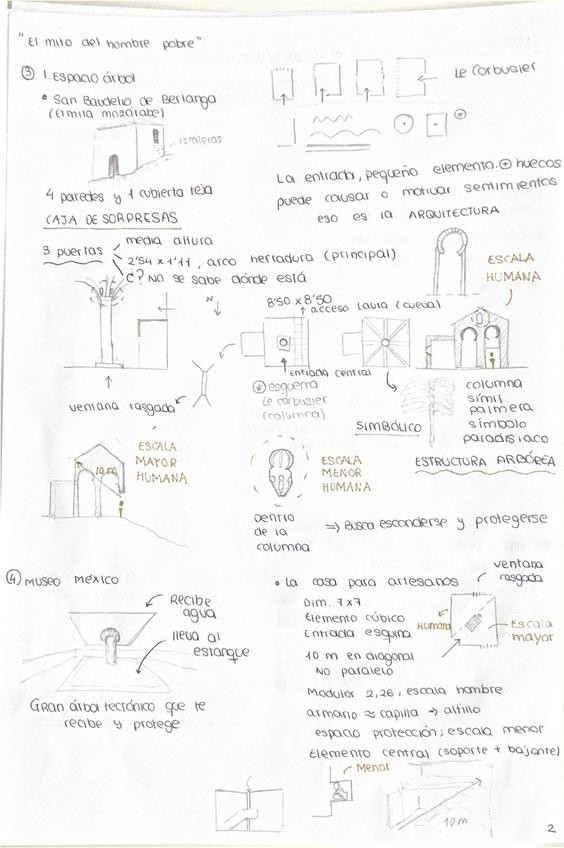 "El mito del hombre pobre"
③ 1. ESPACIO árbol
• San Baudelio de Berlanga
(Ermita mozárabe)
4 paredes y 1 cubierta teja
CAJA DE SORPRESAS
Le Corbusier
La entrada, pequeño elemento. ⊕ huecos
puede causar o motivar sentimientos
eso es la ARQUITECTURA
3 puertas
media altura
2'54 x 1'11, arco herradura (principal)
¿? No se sabe dónde está
ESCALA
HUMANA
N
8'50 x 8'50
↑ acceso Laura (cueva)
entrada central
ventana rasgada
⊛ esquema
Le Corbusier
(columna)
SIMBÓLICO
columna
símil
palmera
símbolo
paradisiaco
ESTRUCTURA ARBÓREA
ESCALA
MAYOR
HUMANA
10 m
ESCALA
MENOR
HUMANA
Dentro
de la
columna
⇒ Busca esconderse y protegerse
④ MUSEO MÉXICO
Recibe
agua
lleva al
estanque
Gran árbol tectónico que te
recibe y protege
• La casa para artesanos
ventana
rasgada
Dim. 7x7
Elemento cúbico
Entrada esquina
Humana
Escala
mayor
10 m en diagonal
No paralelo
Modulor 2,26, escala hombre
armario ≈ capilla → altillo
espacio protección; escala menor
Elemento central (soporte + bajante)
Menor
10 m
2